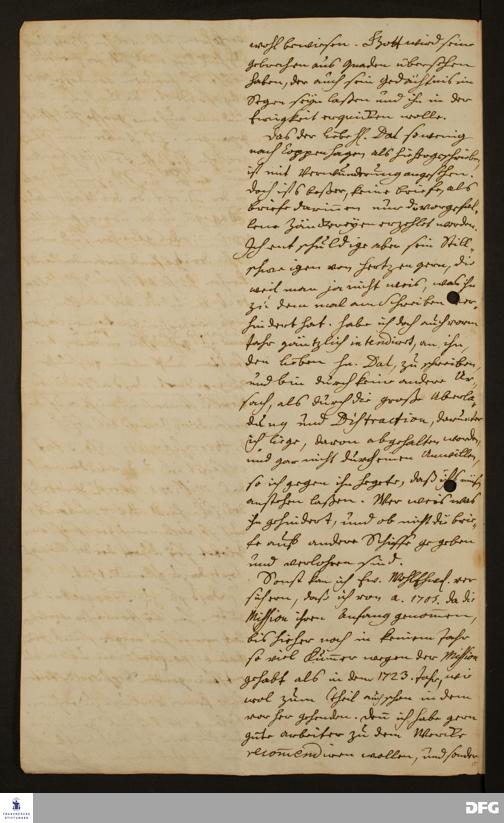 wohl bewiesen. Gott wird seine
gebrechen aus Gnaden übersehen
haben, der auch sein Gedächtnis im
Segen seÿn laßen und ihn in der
Ewigkeit erquicken wolle.
Das der liebe H. Dal so wenig
nach Coppenhagen als hieher geschrieben,
ist mit Verwunderung angesehen.
Doch ists beßer, keine briefe, als
briefe darinnen nur die vorgefal-
lene Zänckereÿen erzehlet werden.
Ich entschuldige aber sein Still-
schweigen von Hertzen gern, die-
weil man ja nicht weis, was ihn
zu dem mal am Schreiben ver-
hindert hat. habe ich doch auch vorm
Jahr gäntzlich intendirt, an ihn,
den lieben Hn. Dal, zu schreiben,
und bin durch keine andere Ur-
sach, als durch die große Überla-
dung und Distraction, darunter
ich liege, davon abgehalten worden,
und gar nicht durch einen Unwillen,
so ich gegen ihn hegete, daß ichs mit
anstehen laßen. Wer weis was
ihn gehindert, und ob nicht die brie-
fe auf andere Schiffe gegeben
und verlohren sind.
Sonst kan ich Ew. WohlEhrw. ver-
sichern, daß ich von a. 1705. da die
Mission ihren Anfang genommen,
bis hieher noch in keinem Jahr
so viel Kummer wegen der Mission
gehabt als in dem 1723. Jahr, wie
wol zum theil auch schon in dem
vorher gehenden. Denn ich habe gern
gute arbeiter zu dem Wercke
recommendiren wollen, und sonder
FRANCKESCHE
STIFTUNGEN
DFG